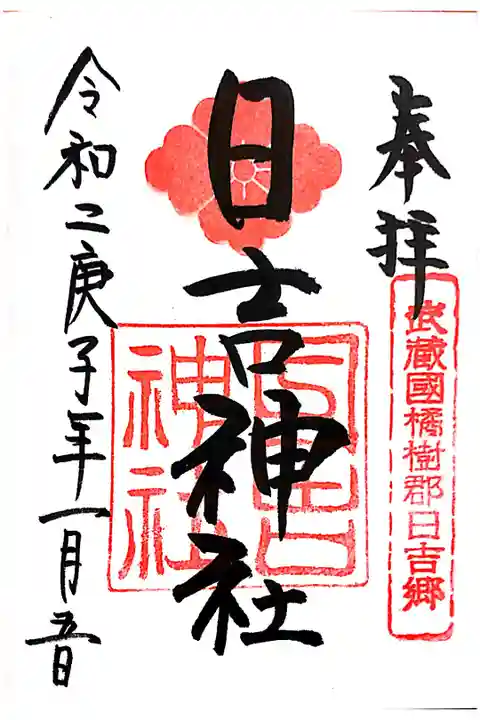 奉拝
武蔵國橘樹郡日吉郷
日吉神社
日吉神社
令和二庚子年一月五日